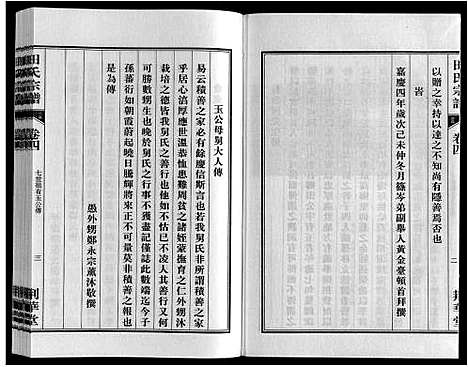 田氏宗譜
卷四
二
荆華堂
以贈之幸持以達之不知尚有隱善焉否也
旹
嘉慶四年歲次己未仲冬月篠岑弟副舉人黃金臺頓首拜撰
玉公母舅大人傳
易云積善之家必有餘慶信斯言也我舅氏非所謂積善之家
乎居心渾厚應世溫恭恤患難周貧乏諸姪輩撫育之仁外甥沐
栽培之德皆人所共知者也我舅氏之善行也他如不怙已不凌人者
可勝數甥生也晚於舅氏之行事不獲盡記僅誌此數端迄今
孫蕃衍如朝霞蔚起曉日騰輝將來正不可量莫非積善之報也
是為傳
愚外甥鄭永宗薰沐敬撰
田氏宗譜
卷四
七世祖有玉公傳
三
荆華堂